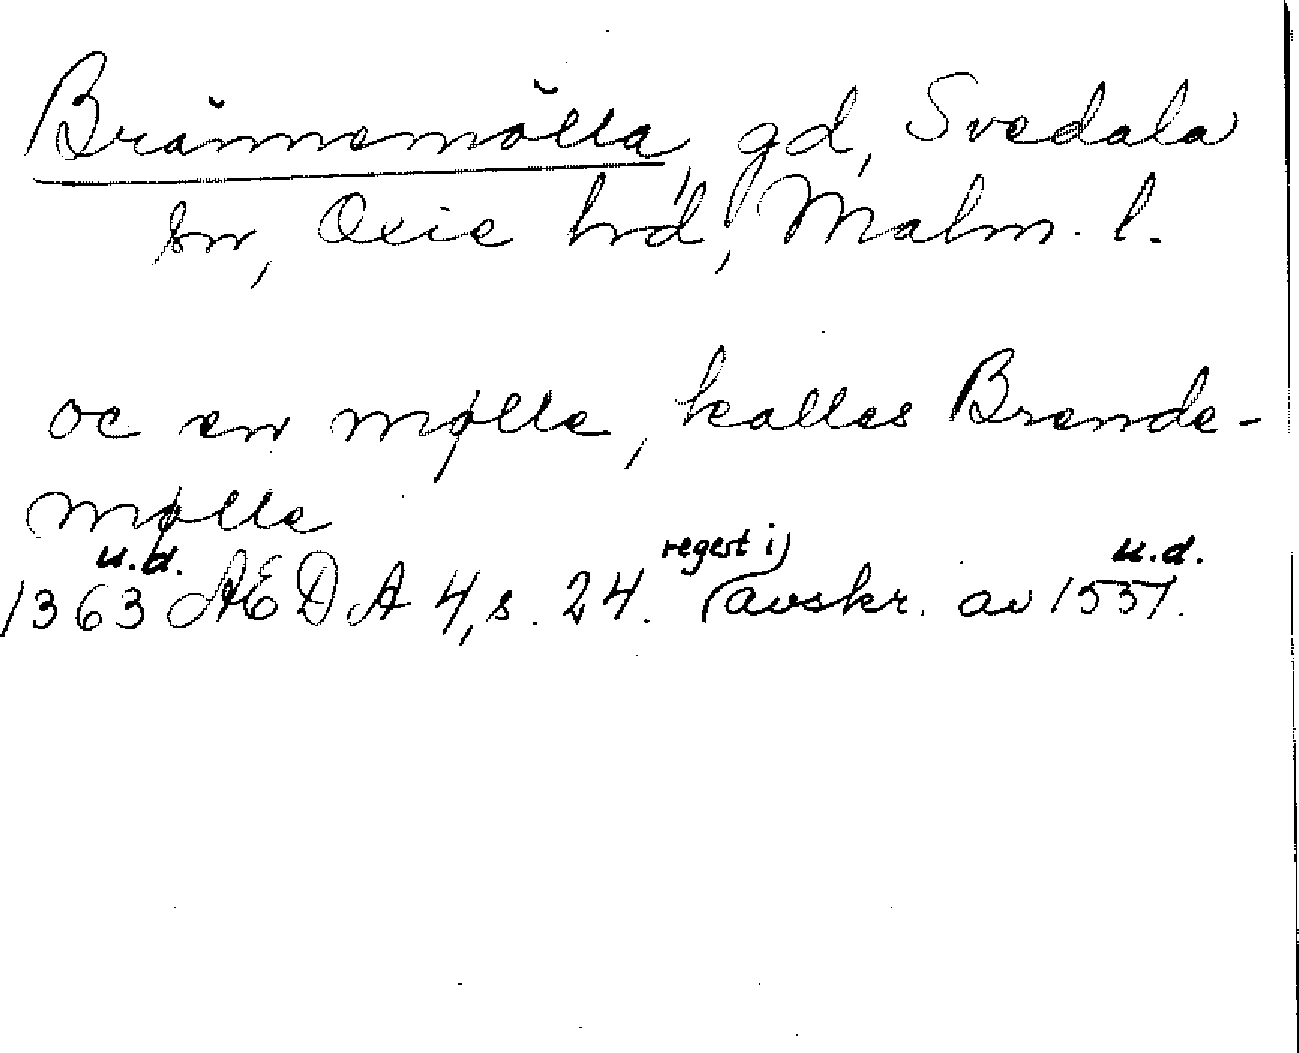 Brännemölla, gd, Svedala
sn, Oxie hrd, Malm. l.
oc en mølle, kalles Brende-
mølle
u.d. regest i) u.d.
1363 ÆDA 4, s. 24. (avskr. av 1551.